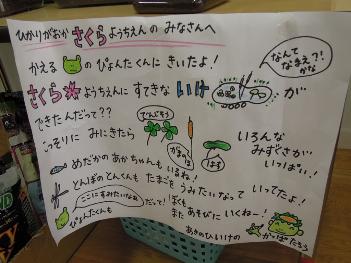 ひかりがおかさくらようちえんのみなさんへ
かえるのぴょんたくんにきいたよ!
なんてなまえ?!かな
さくらようちえんにすてきないけが
できたんだって??
でんじそう
こっそりにみにきたら
がまのほ
はす
いろんな
みずくさが
いっぱい!
めだかのあかちゃんもいるね!
とんぼのとんくんもたまごをうみたいなって
いってたよ!
ぴょんたくんも
ここにすみたいなぁ
だって!
ぼくも
またあそびにいくねー!
あきのひいけの
かっぱたろう